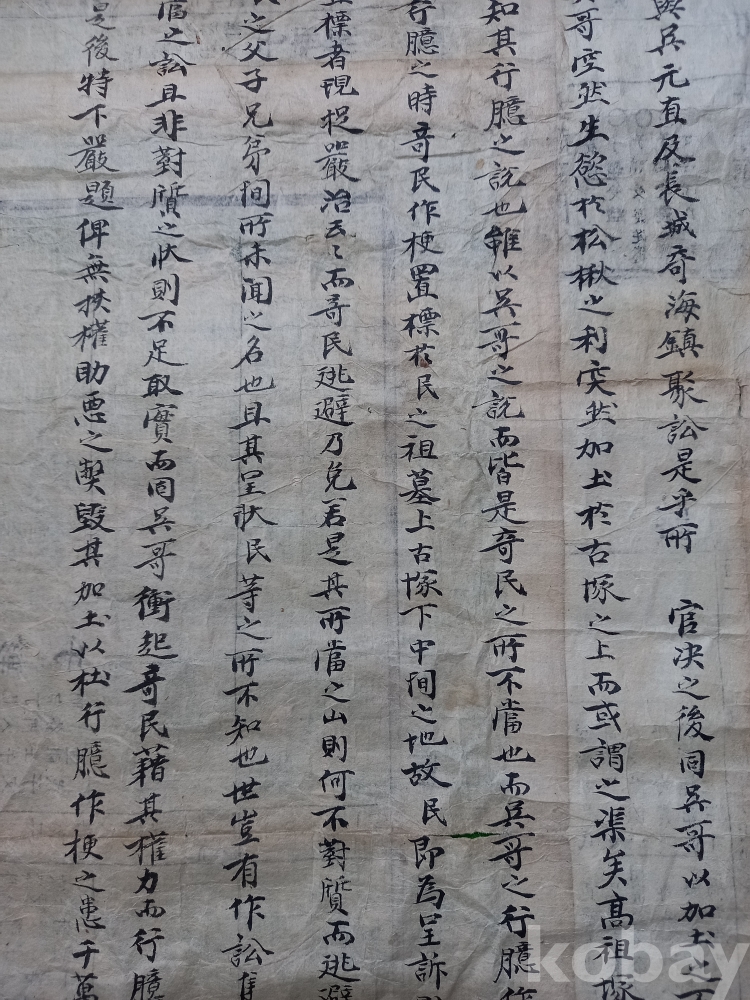 與吳元直及長城奇海鎭聚訟是乎所 官決之後同吳哥以加土之
哥空然生慾於松楸之利突然加土於古塚之上而或謂之渠矣高祖塚
知其行臆之說也雖以吳哥之說而皆是奇民之所不當也而吳哥之行臆作
行臆之時奇民作梗置標於民之祖墓上古塚下中間之地故民卽為呈訴
標者現捉嚴治云云而奇民逃避乃免若是其所當之山則何不對質而逃避
之父子兄弟間所未聞之名也且其呈狀民等之所不知也世豈有作訟隻
當之訟且非對質之狀則不足取實而同吳哥衝起奇民藉其權力而行臆
是後特下嚴題俾無挾權助惡之弊毀其加土以杜行臆作梗之患千萬
kobay